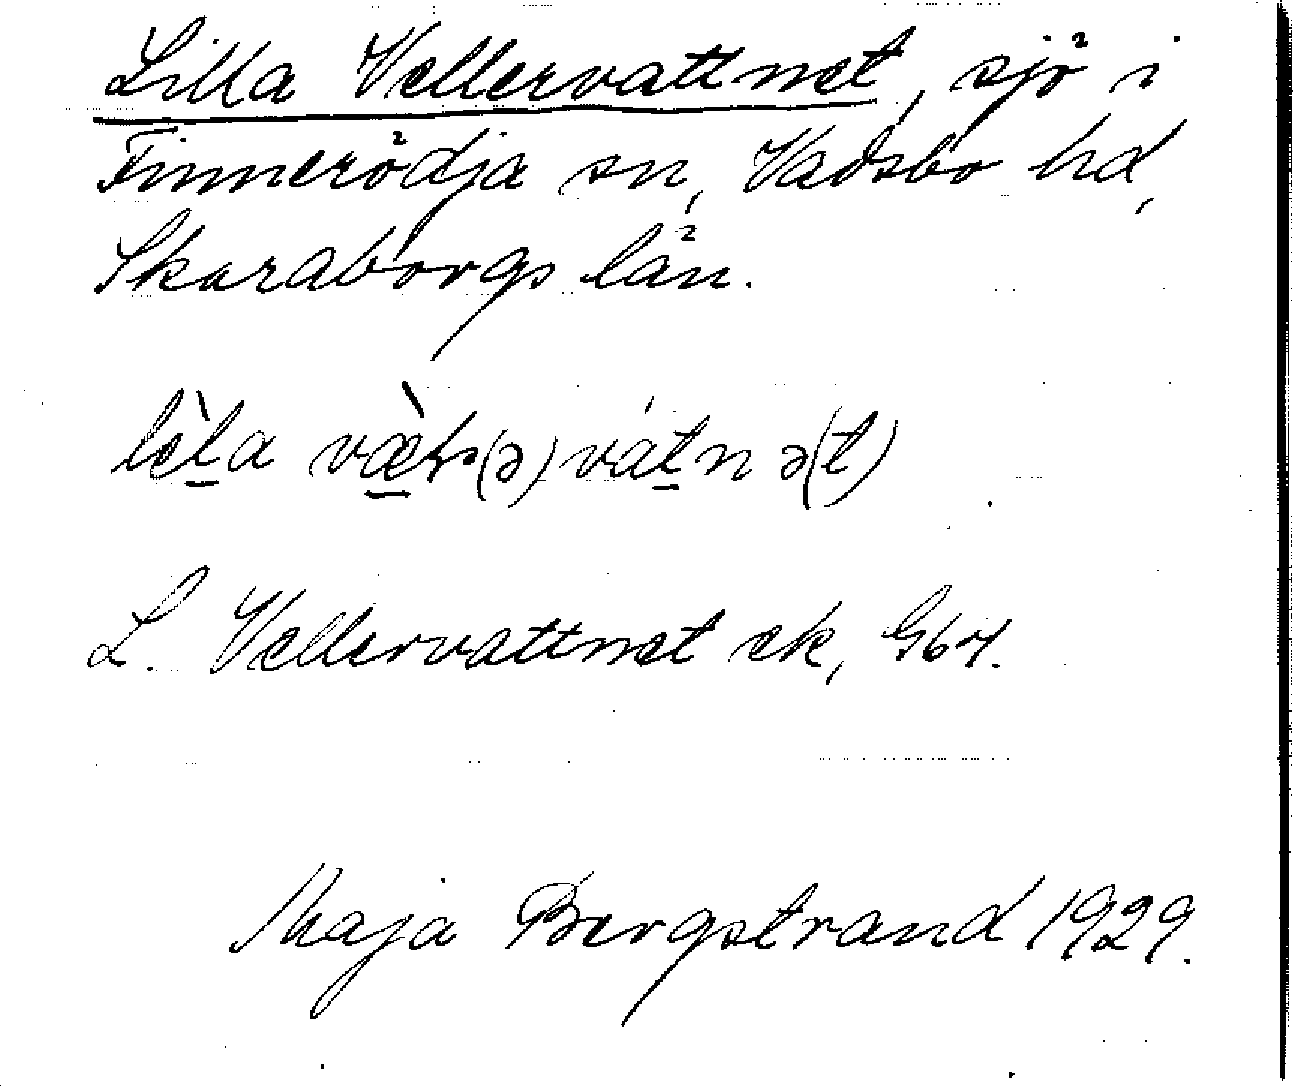 Lilla Vellervattnet, sjö i
Finnerödja sn, Vadsbo hd,
Skaraborgs län.
lèla
L. Vellervattnet ek, G64.
Maja Bergstrand 1929.